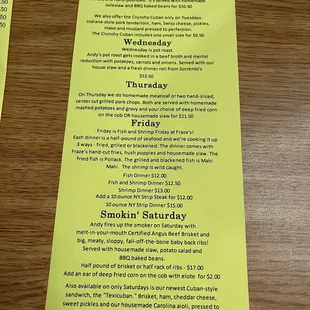 coleslaw and BBQ baked beans for $10.50
We also offer the Crunchy Cuban only on Tuesdays.
Indiana-style pork tenderloin, ham, Swiss cheese, pickles,
mayo and mustard pressed to perfection.
The Crunchy Cuban includes one small side for $9.50
Wednesday
Wednesday is pot roast.
Andy's pot roast gets cooked in a beef broth and merlot
reduction with potatoes, carrots and onions. Served with our
house slaw and a fresh dinner roll from Sorrento's
$13.50
Thursday
On Thursday we do homemade meatloaf or two hand-sliced,
center cut grilled pork chops. Both are served with homemade
mashed potatoes and gravy and your choice of deep fried corn
on the cob OR housemade slaw for $11.50
Friday
Friday is Fish and Shrimp Friday at Fraze's!
Each dinner is a half-pound of seafood and we're cooking it up
3 ways - fried, grilled or blackened. The dinner comes with
Fraze's hand-cut fries, hush puppies and housemade slaw. The
fried fish is Pollack. The grilled and blackened fish is Mahi
Mahi. The shrimp is wild caught.
Fish Dinner $12.00
Fish and Shrimp Dinner $12.50
Shrimp Dinner $13.00
Add a 10 ounce NY Strip Steak for $12.00
10 ounce NY Strip Dinner $15.00
Smokin' Saturday
Andy fires up the smoker on Saturday with
melt-in-your-mouth Certified Angus Beef Brisket and
big, meaty, sloppy, fall-off-the-bone baby back ribs!
Served with housemade slaw, potato salad and
BBQ baked beans.
Half pound of brisket or half rack of ribs - $17.00
Add an ear of deep fried corn on the cob with elote for $2.00
Also available only on Saturdays is our newest Cuban-style
sandwich, the "Texicuban." Brisket, ham, cheddar cheese,
sweet pickles and our housemade Carolina aioli, pressed to